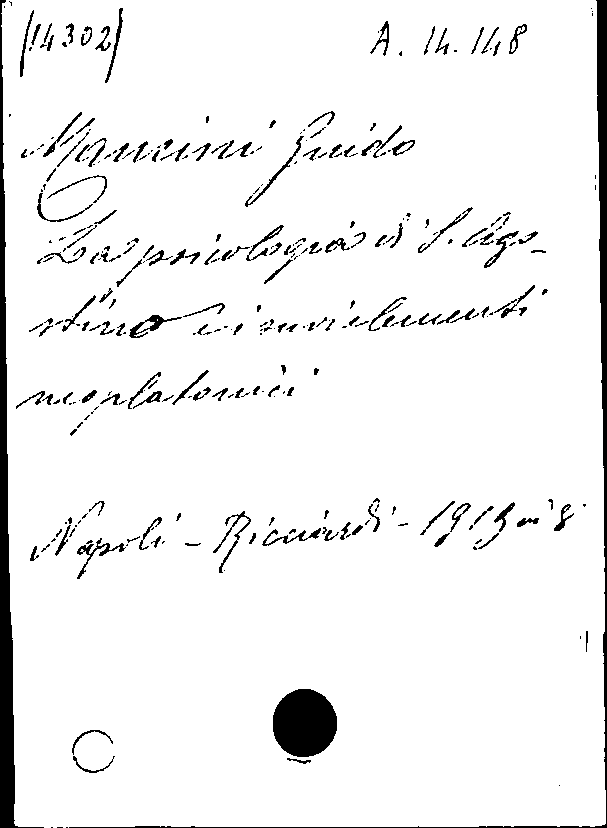 (14302) A. 14. 148
Mancini Guido
La psicologia di S. Ago-
stino e i suoi elementi
neoplatonici
Napoli - Ricciardi - 1919 in 8°